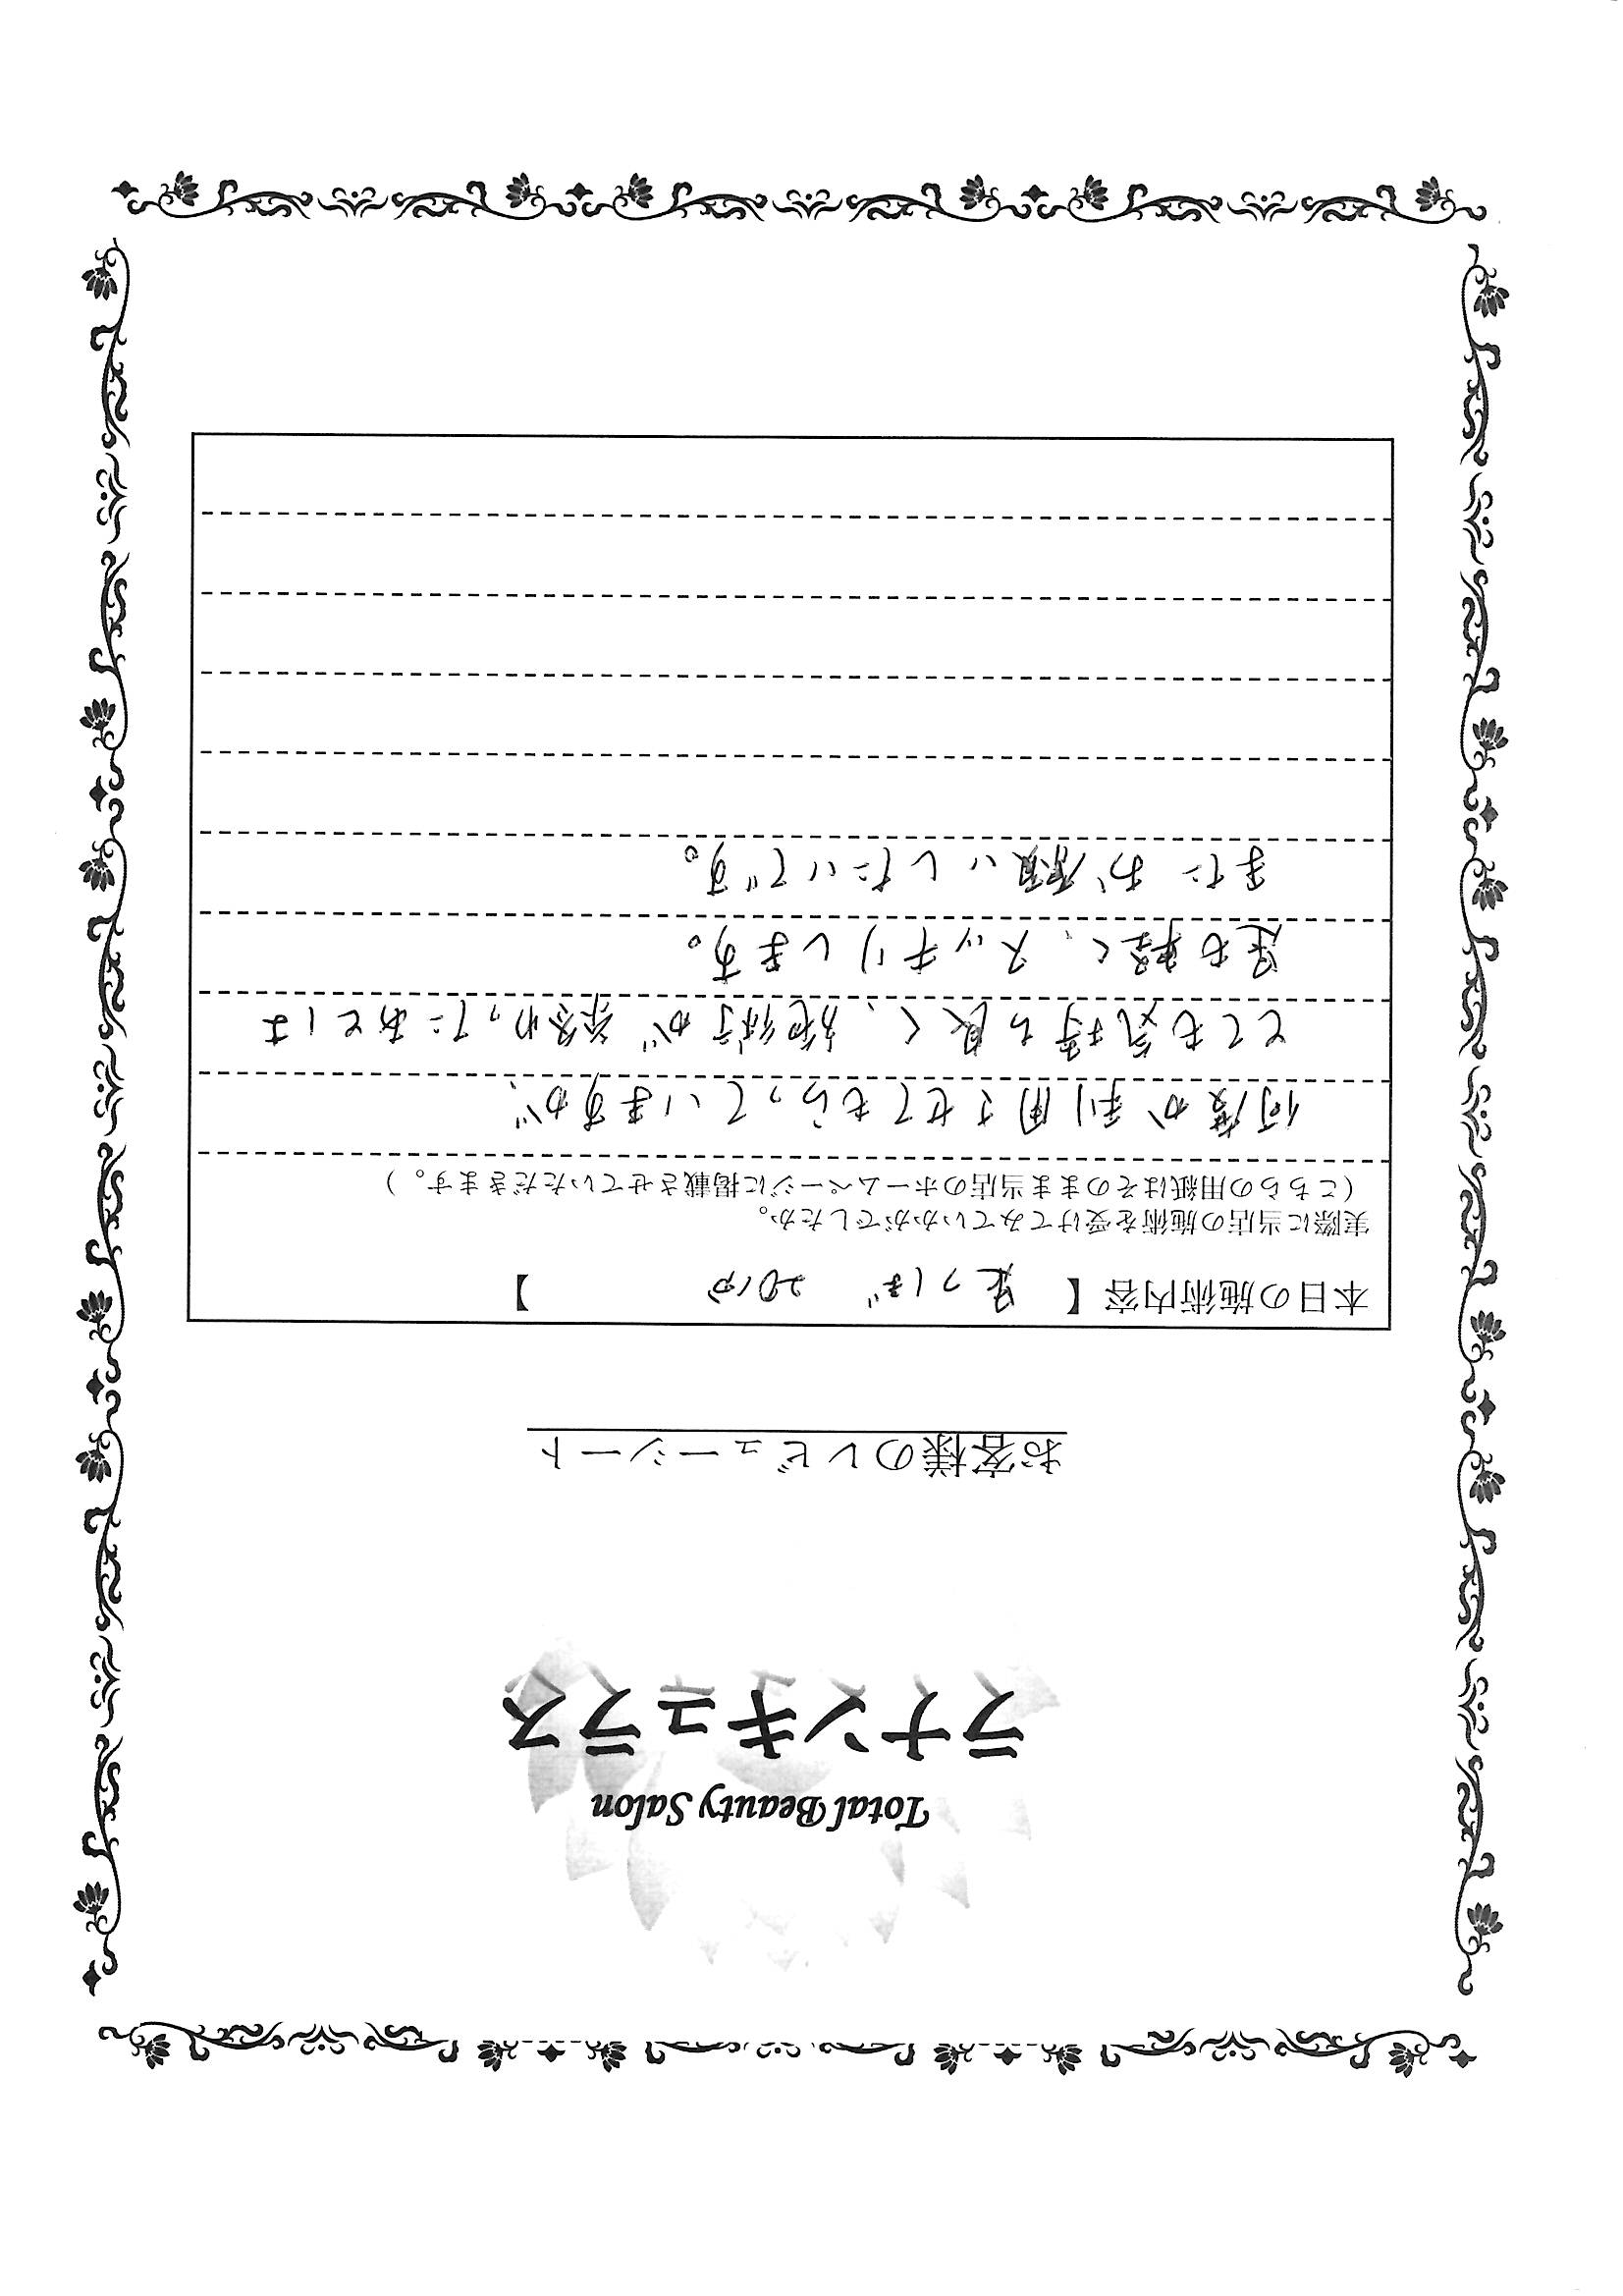 Total Beauty Salon
ラナンキュラス
お客様のレビューシート
本日の施術内容【 足つぼ 20分 】
実際に当店の施術を受けてみていかがでしたか。
(こちらの用紙はそのまま当店のホームページに掲載させていただきます。)
何度か利用させてもらっていますが、
とても気持ち良く、施術が終わったあとは
足も軽く、スッキリします。
またお願いしたいです。